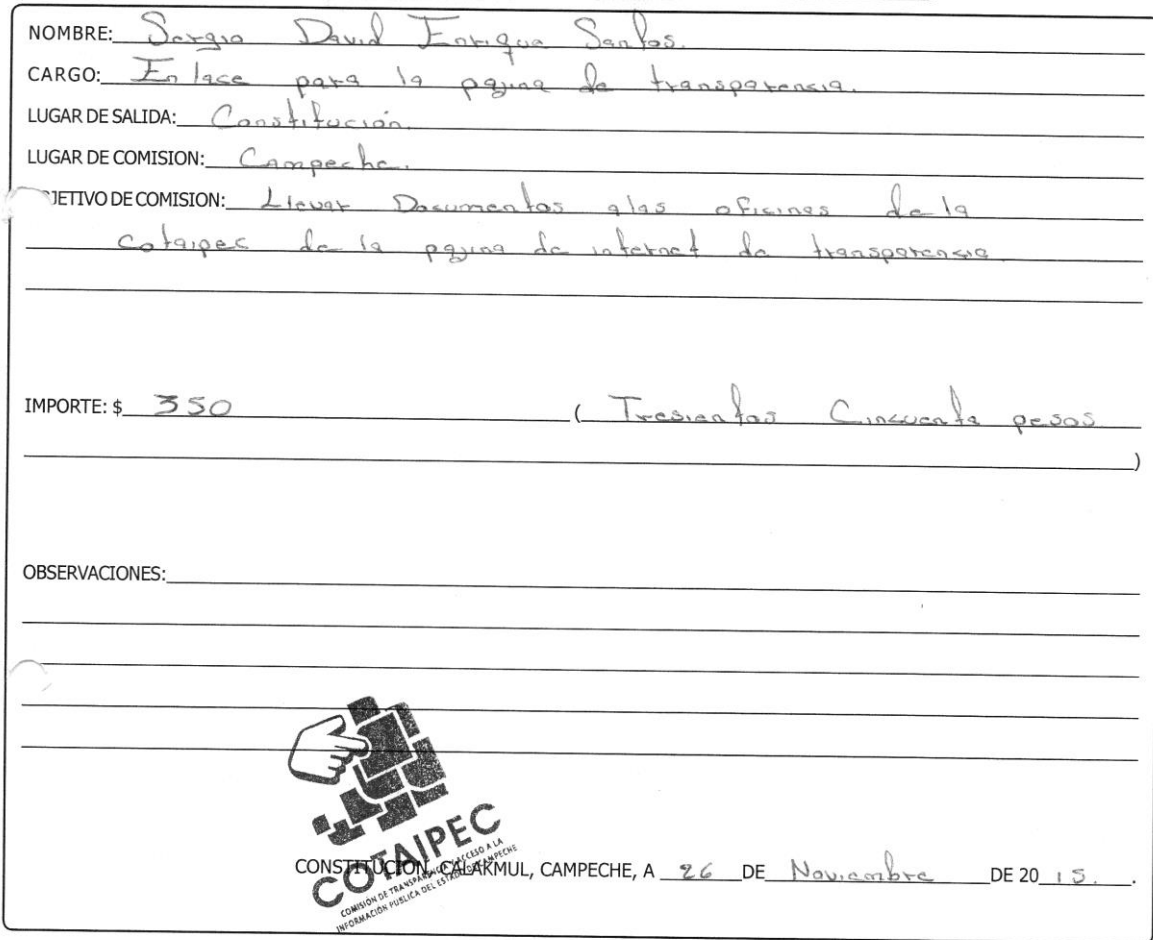 NOMBRE: Sergio David Enrique Santos.
CARGO: Enlace para la pagina de transparensia.
LUGAR DE SALIDA: Constitución.
LUGAR DE COMISION: Campeche.
JETIVO DE COMISION: Llevar Documentos alas oficinas de la
cotaipec de la pagina de internet de transparensia
IMPORTE: $ 350 ( Tresientos Cincuenta pesos
)
OBSERVACIONES:
COTAIPEC
COMISIÓN DE TRANSPARENCIA Y ACCESO A LA
INFORMACIÓN PUBLICA DEL ESTADO DE CAMPECHE
CONSTITUCION, CALAKMUL, CAMPECHE, A 26 DE Noviembre DE 20 15.